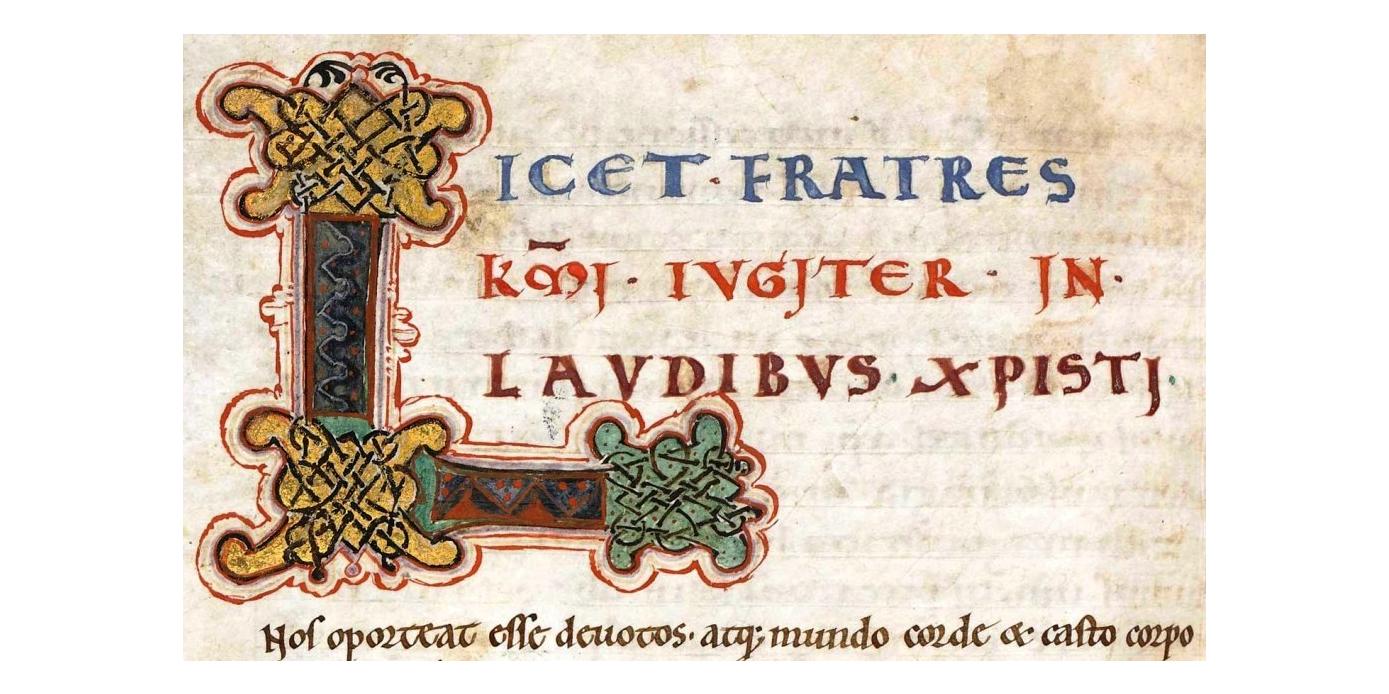 LICET · FRATRES
K̅M̅I · IVGITER · IN ·
LAVDIBVS · XPISTI ·
Nos oporteat esse deuotos · atq; mundo corde & casto corpo